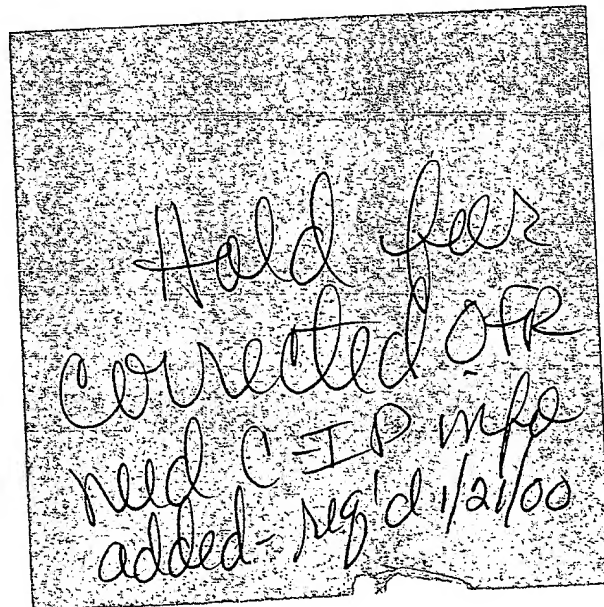 Hold for
corrected OFR
need C-IP info
added - req'd 1/21/00